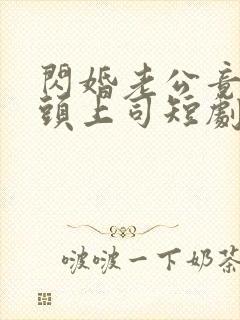 閃婚老公竟
頭上司短劇
啵啵一下奶茶